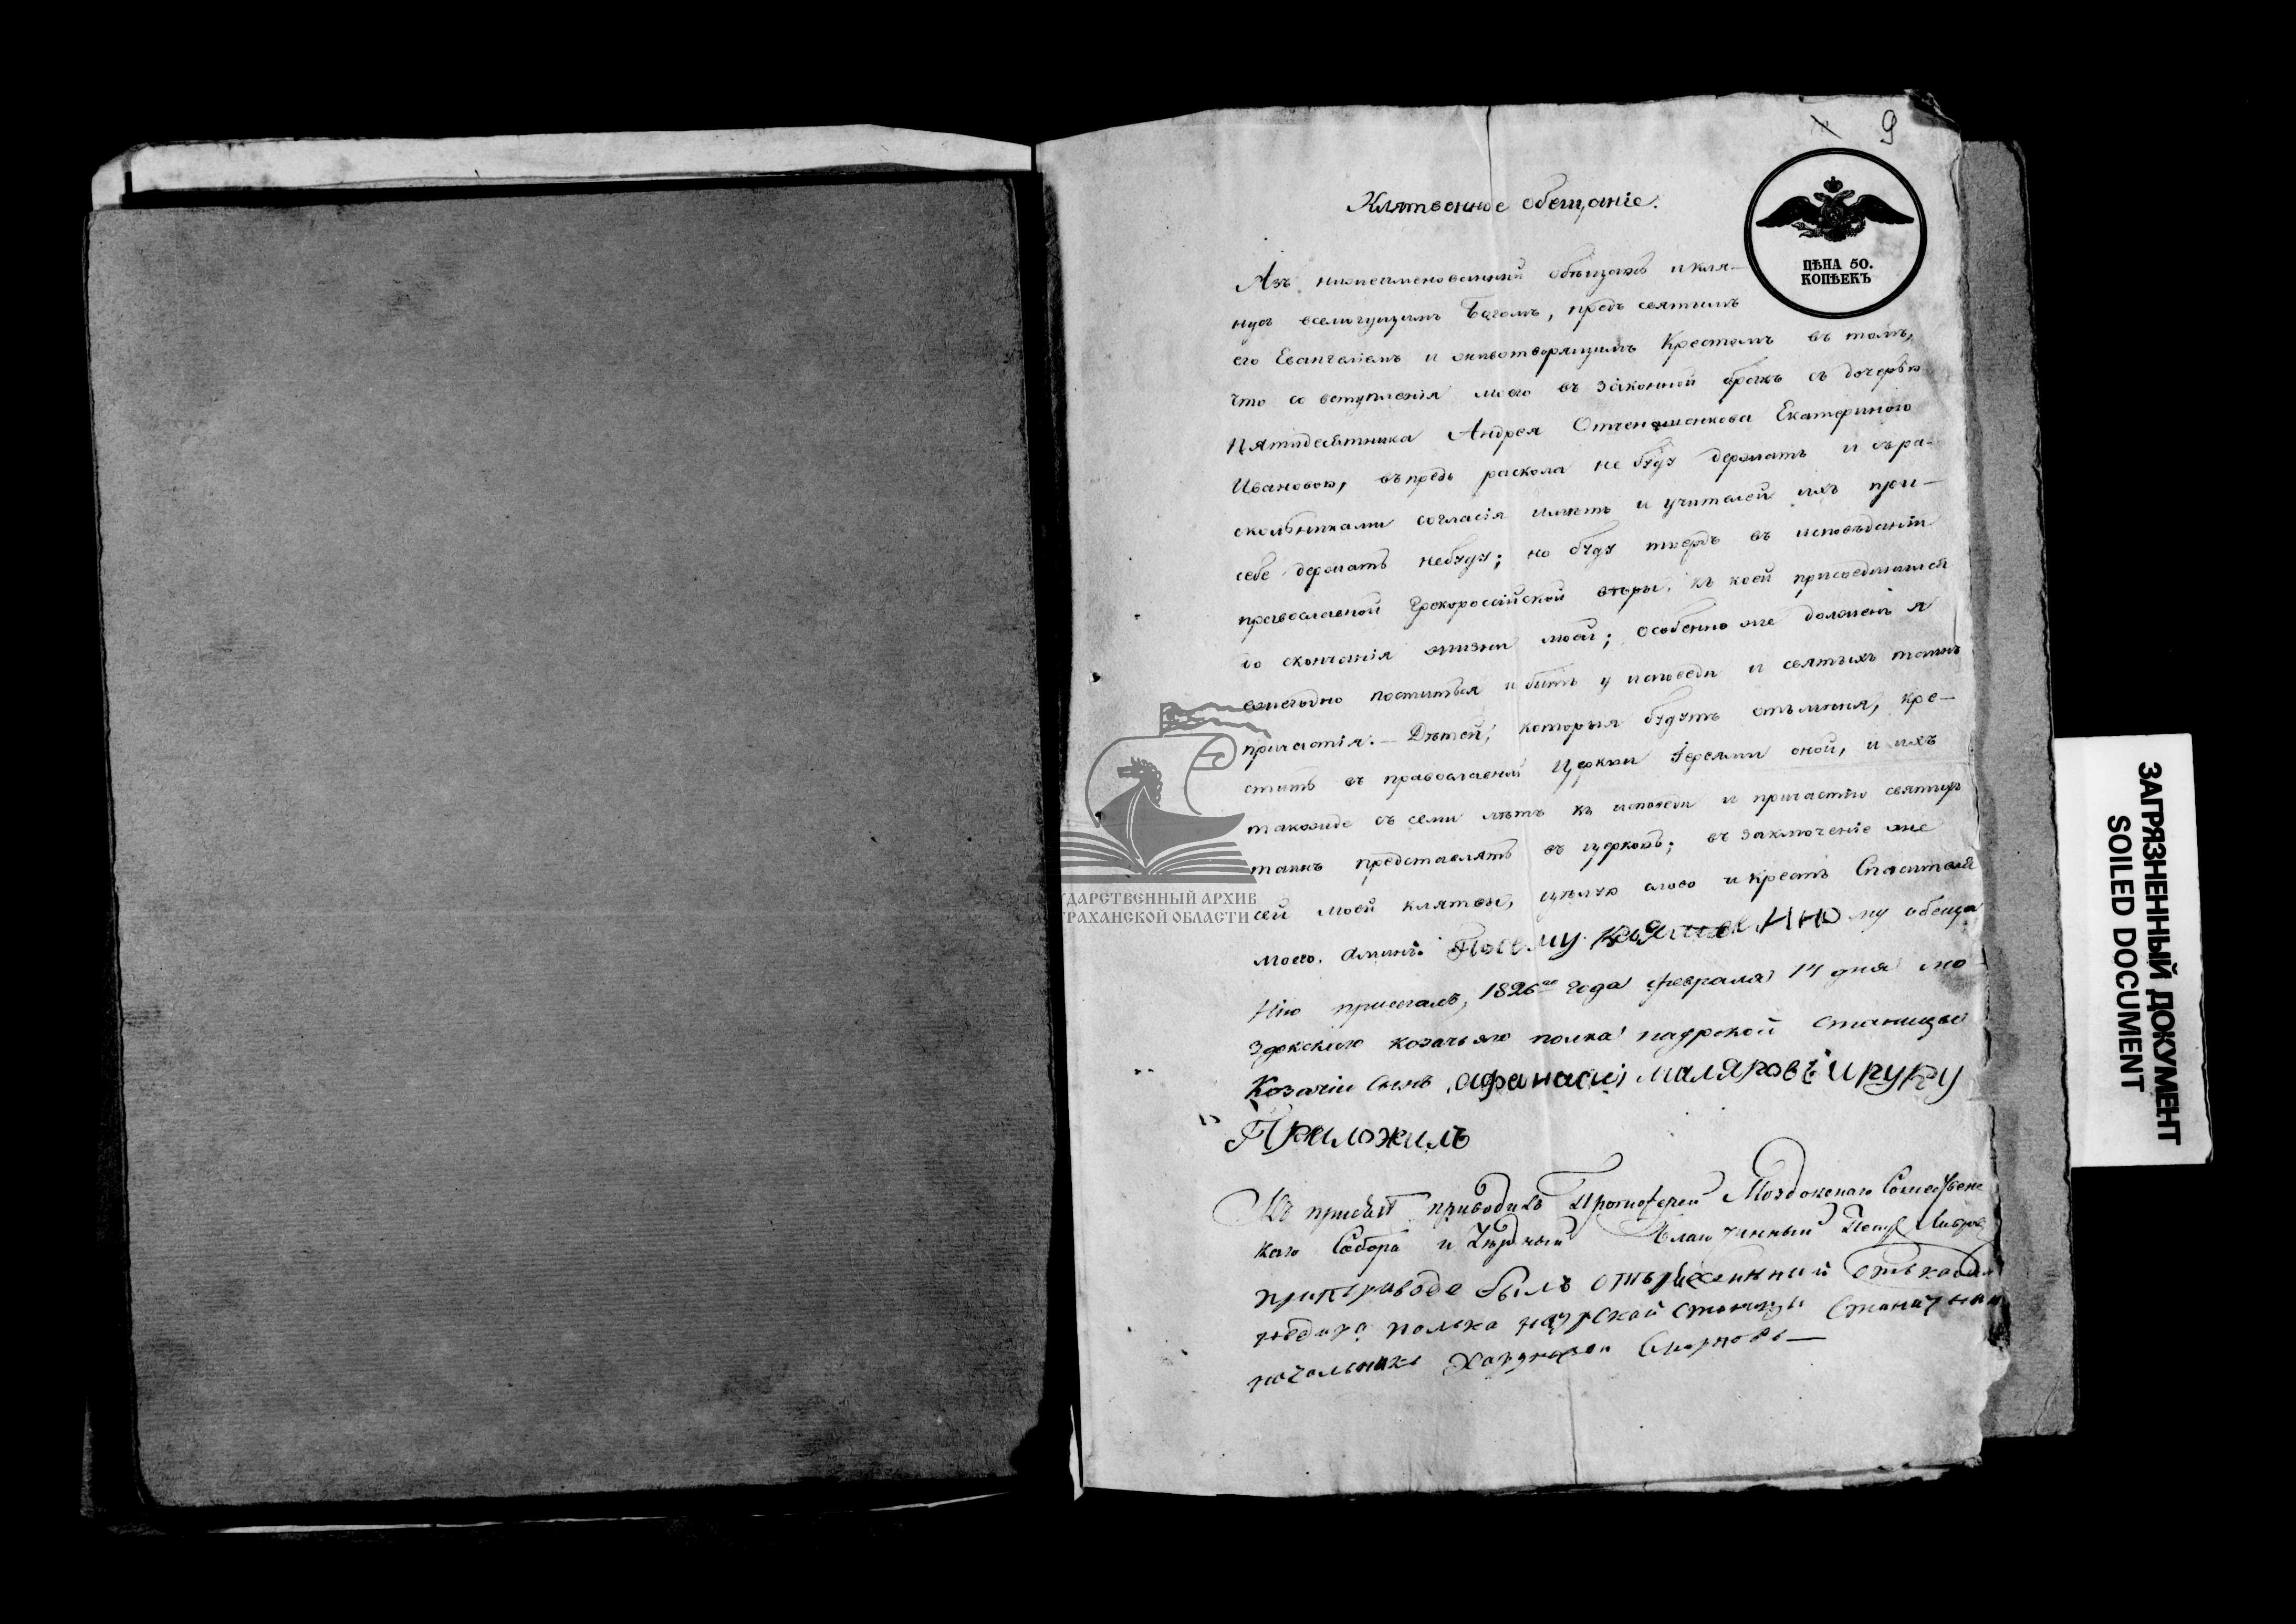 9
Клятвенное обещаніе.
ЦѢНА 50.
КОПѢЕКЪ
Азъ нижеименованный обѣщаюсь и кля-
нусь всемогущимъ Богомъ, предъ святымъ
его Евангеліемъ и животворящимъ Крестомъ въ томъ,
что со вступленія моего въ законной бракъ съ дочерью
Пятидесятника Андрея Екатериною
Ивановою, въпредь раскола не буду держать и съра-
скольниками согласія имѣть и учителей ихъ при-
себе держать небуду; но буду твердъ въ исповѣданіи
православной Грекороссійской вѣры, къ коей присоединился
до скончанія жизни моей; особенно же долженъ я
ежегодно поститься и быть у исповеди и святыхъ таинъ
причастія. – Дѣтей, которыя будутъ отъ меня, кре-
стить въ православной Церкви Іереями оной, и ихъ
такожде съ семи лѣтъ къ исповеди и причастію святыхъ
таинъ представлять въ церковь; въ заключеніе же
сей моей клятвы, цѣлую слово и крестъ Спасителя
моего. Аминь. Посему обеща
нію присягалъ, 1826го года февраля 14 дня мо-
здокскаго козачьяго полка наурской станицы
Козачіи сынъ афанасиі маляровъ и руку
Приложилъ
Къ присягѣ приводилъ Протоіерей Моздокскаго
каго Собора и Благочинный
при приводе былъ
полка наурской станицы Станичный
начальникъ Хорунжей
ГОСУДАРСТВЕННЫЙ АРХИВ
АСТРАХАНСКОЙ ОБЛАСТИ
ЗАГРЯЗНЕННЫЙ ДОКУМЕНТ
SOILED DOCUMENT